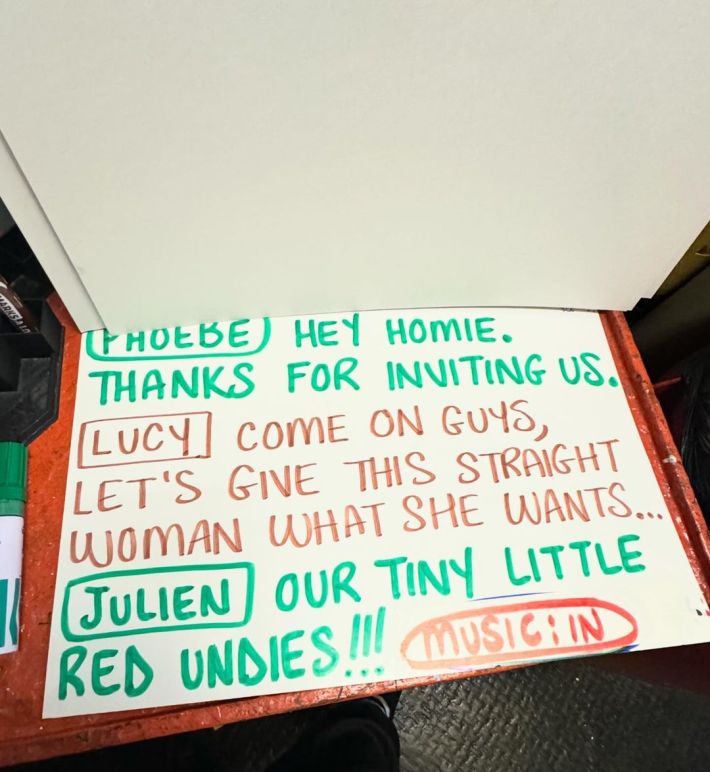 PHOEBE HEY HOMIE.
THANKS FOR INVITING US.
LUCY COME ON GUYS,
LET'S GIVE THIS STRAIGHT
WOMAN WHAT SHE WANTS...
JULIEN OUR TINY LITTLE
RED UNDIES!!! MUSIC: IN